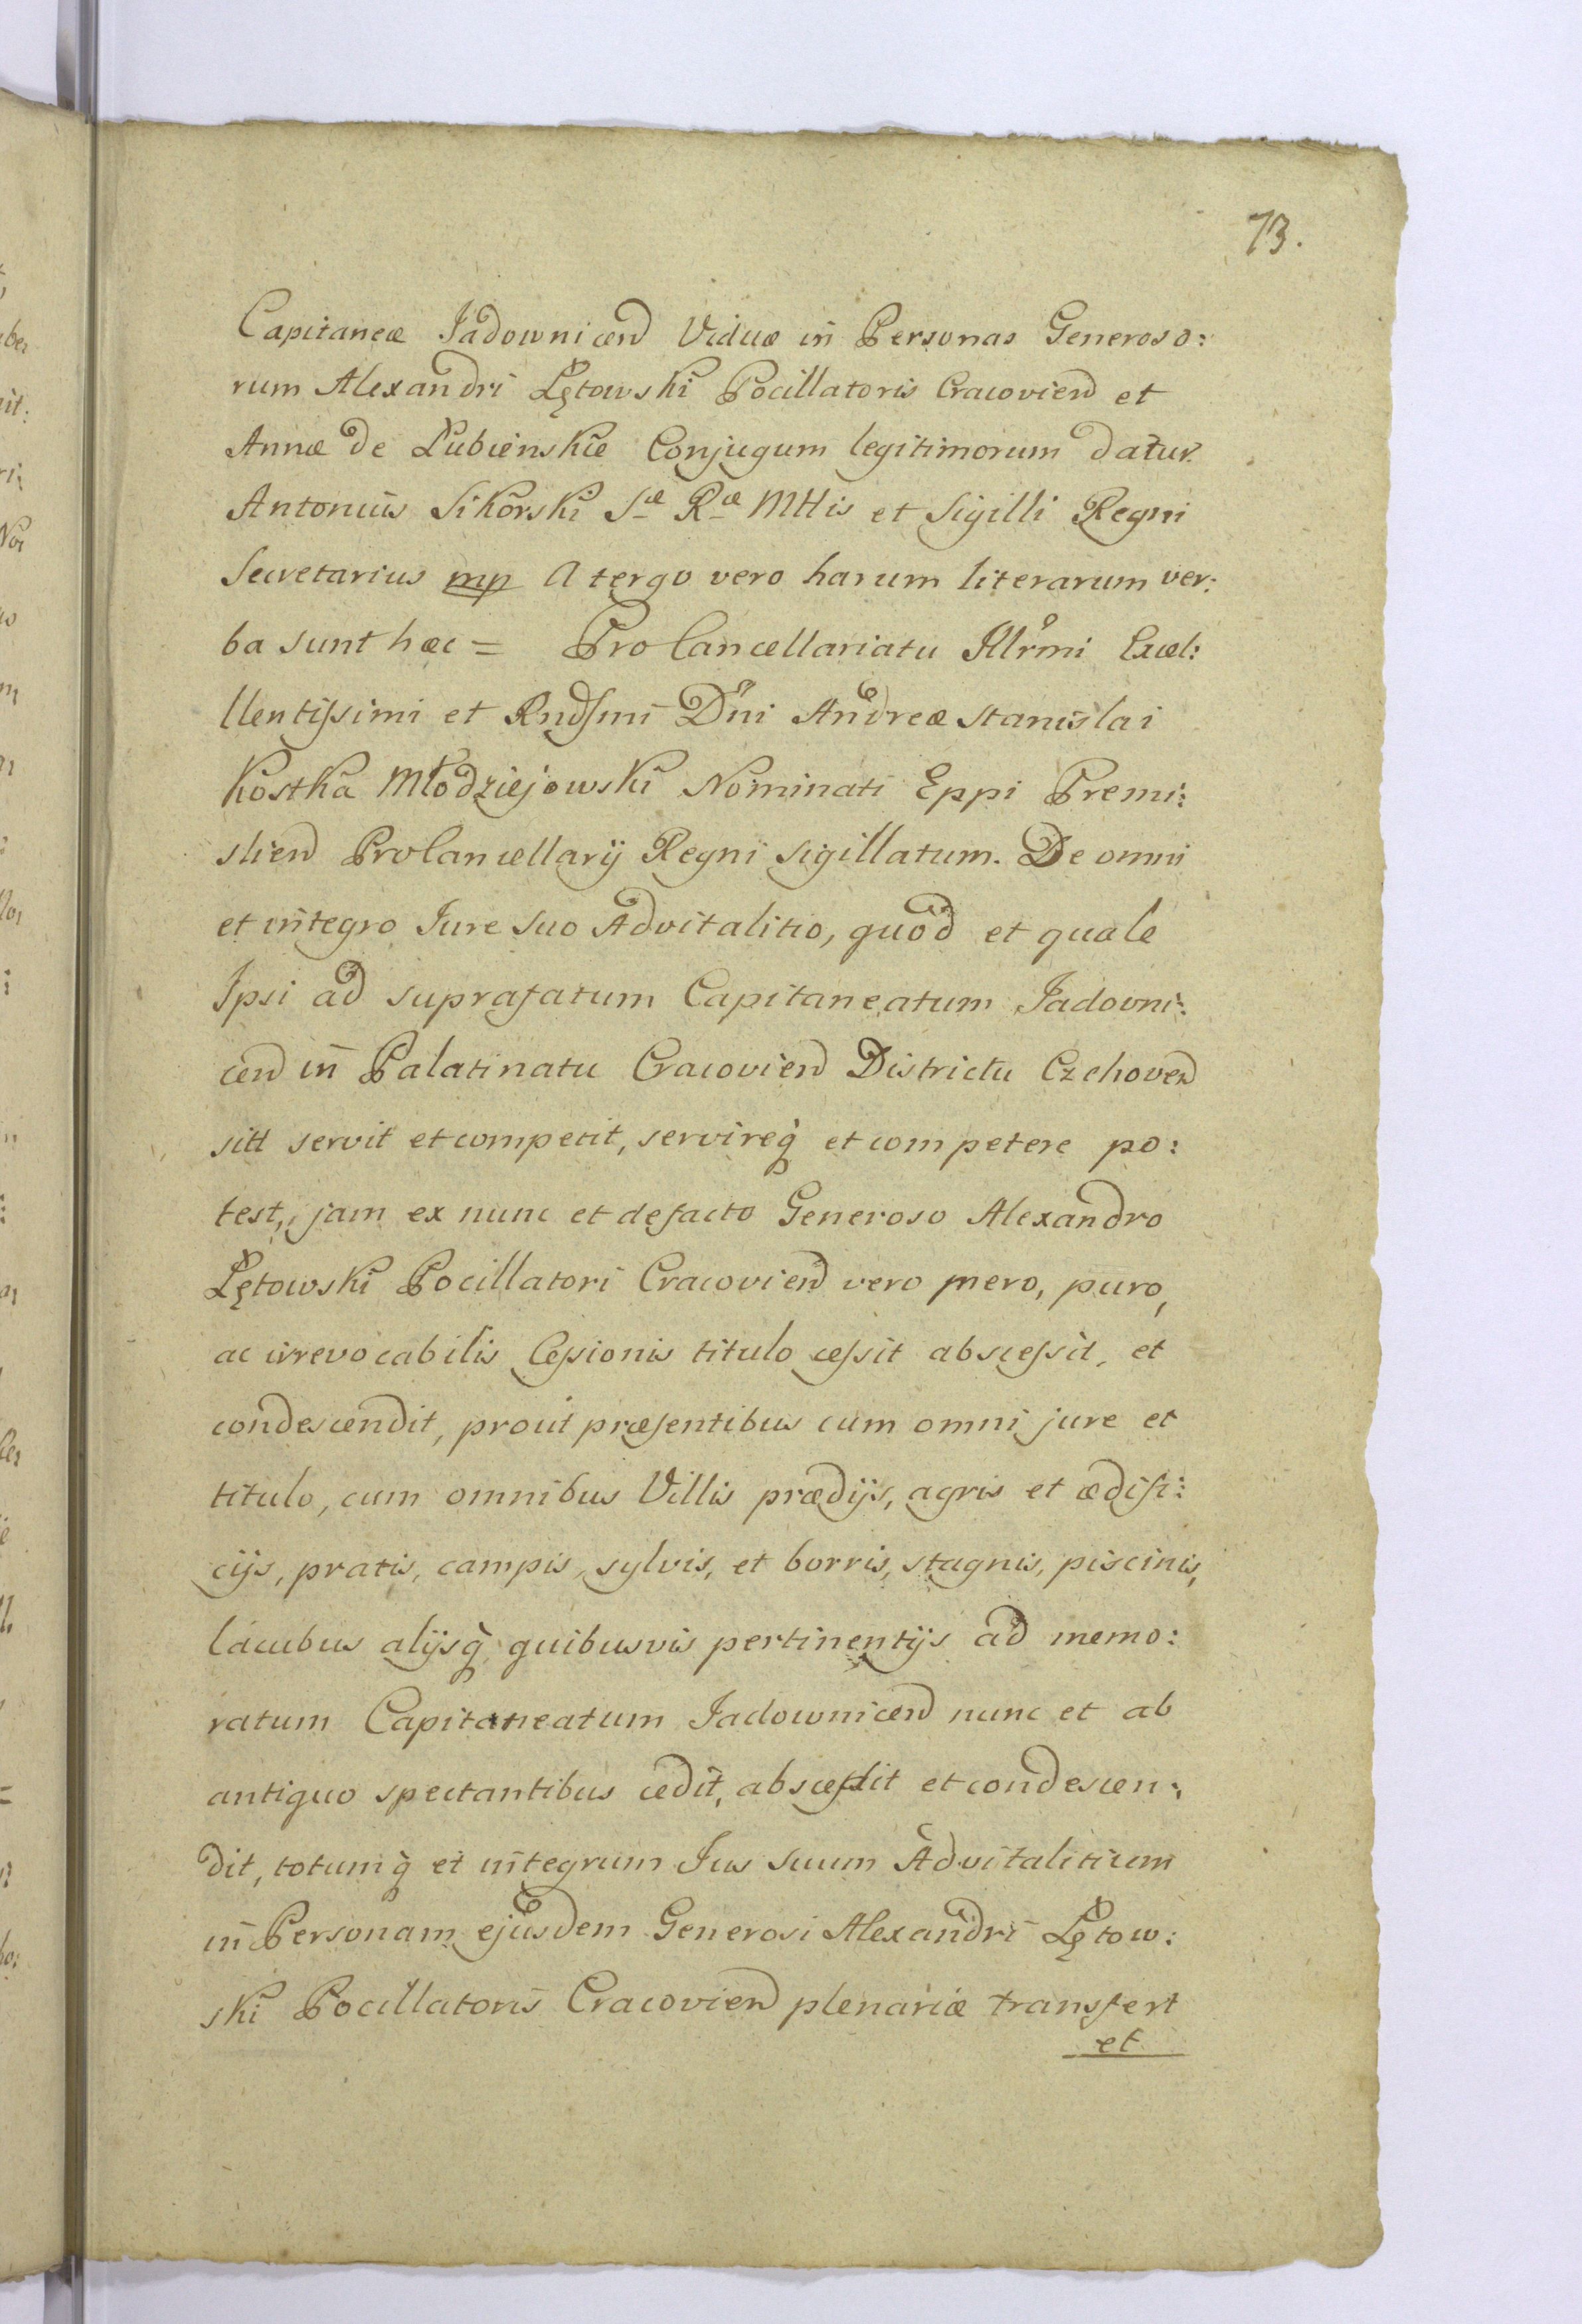 73.
Capitaneæ Jadownicen Viduæ in Personas Generoso:
rum Alexandri Łętowski Pocillatoris Cracovien et
Annæ de Łubienskie Conjugum legitimorum datur.
Antonius Sikorski Sæ Ræ Mttis et Sigilli Regni
Secretarius mp A tergo vero harum literarum ver:
ba sunt hæc = Pro Cancellariatu Illrmi Excel:
llentissimi et Rndsmi Dni Andreæ Stanislai
Kostka Młodziejowski Nominati Eppi Premi:
slien ProCancellarij Regni Sigillatum. De omni
et integro Jure Suo Advitalitio, quod et quale
Ipsi ad suprafatum Capitaneatum Jadovni:
cen in Palatinatu Cracovien Districtu Czchoven
sitt servit et competit, servireq et competere po:
test, jam ex nunc et defacto Generoso Alexandro
Łętowski Pocillatori Cracovien vero mero, puro,
ac irrevocabilis Cessionis titulo cessit abscessit, et
condescendit, prout præsentibus cum omni jure et
titulo, cum omnibus Villis prædijs, agris et ædifi:
cijs, pratis, campis, sylvis, et borris, stagnis, piscinis,
lacubus alijsq quibusvis pertinentijs ad memo:
ratum Capitaneatum Jadownicen nunc et ab
antiquo spectantibus cedit, abscedit et condescen:
dit, totumq et integrum Jus Suum Advitalitium
in Personam ejusdem Generosi Alexandri Łętow:
ski Pocillatoris Cracovien plenariæ transfert
et